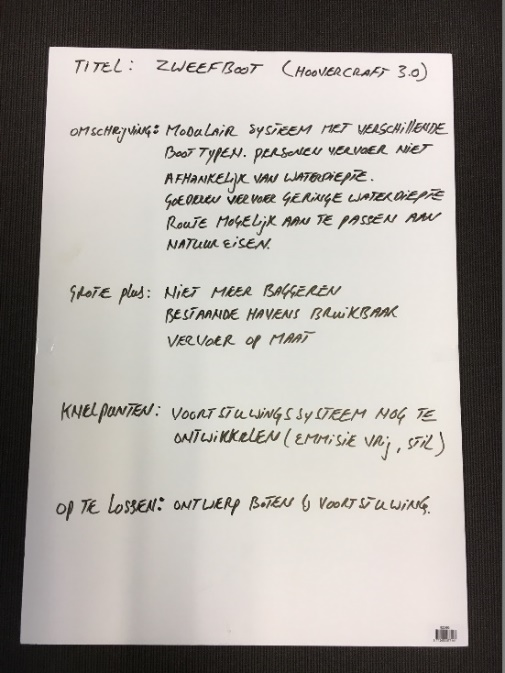 TITEL: ZWEEFBOOT (HOOVERCRAFT 3.0)
OMSCHRIJVING: MODULAIR SYSTEEM MET VERSCHILLENDE
BOOT TYPEN. PERSONEN VERVOER NIET
AFHANKELIJK VAN WATERDIEPTE.
GOEDEREN VERVOER GERINGE WATERDIEPTE
ROUTE MOGELIJK AAN TE PASSEN AAN
NATUUR EISEN.
GROTE PLUS: NIET MEER BAGGEREN
BESTAANDE HAVENS BRUIKBAAR
VERVOER OP MAAT
KNELPUNTEN: VOORTSTUWINGSSYSTEEM NOG TE
ONTWIKKELEN (EMMISIE VRIJ, STIL)
OP TE LOSSEN: ONTWERP BOTEN & VOORTSTUWING.